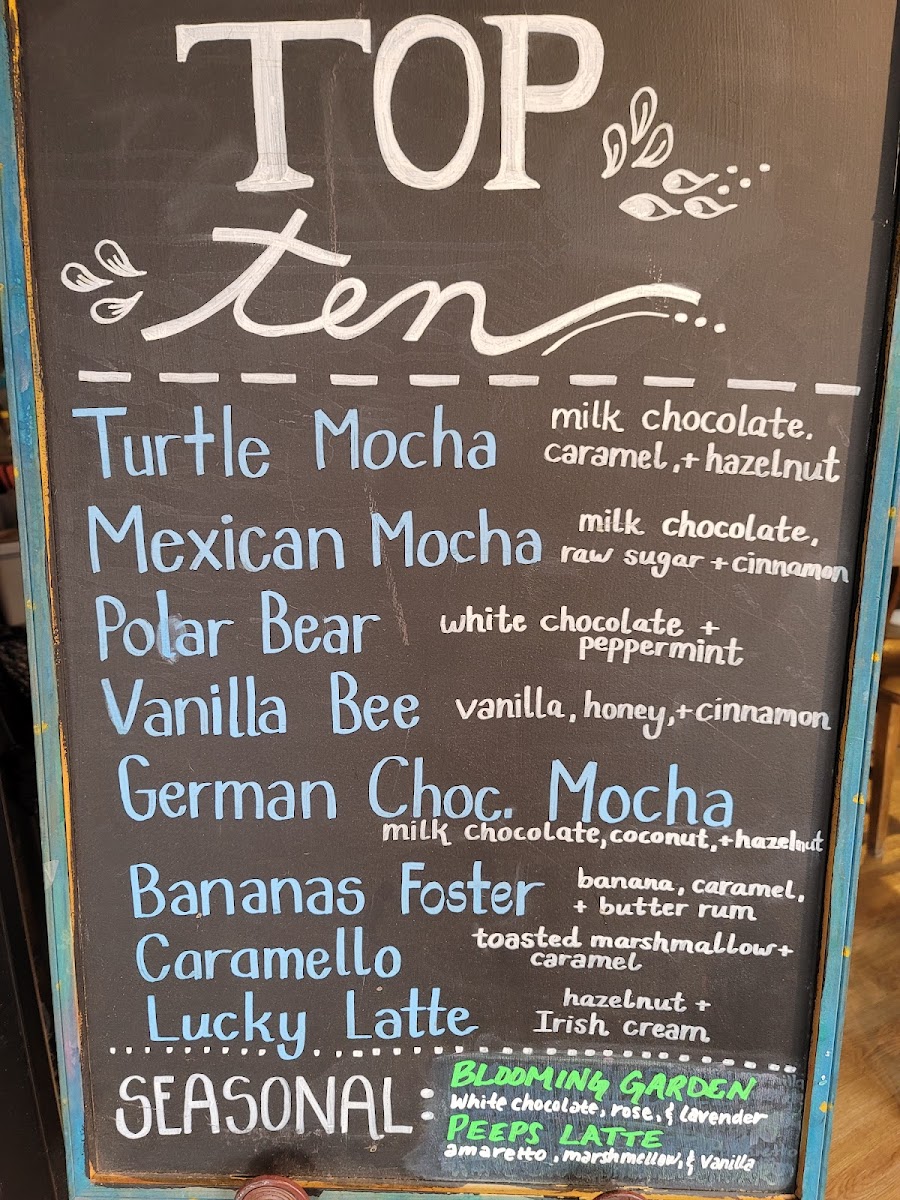 TOP
ten
Turtle Mocha
milk chocolate.
caramel,+ hazelnut
Mexican Mocha
milk chocolate,
raw sugar + cinnamon
Polar Bear
white chocolate +
peppermint
Vanilla Bee
vanilla, honey,+cinnamon
German Choc. Mocha
milk chocolate, coconut,+hazelnut
Bananas Foster
banana, caramel,
+ butter rum
Caramello
toasted marshmallow+
caramel
Lucky Latte
hazelnut +
Irish cream
SEASONAL:
BLOOMING GARDEN
White chocolate, rose, & lavender
PEEPS LATTE
amaretto, marshmellow, & Vanilla